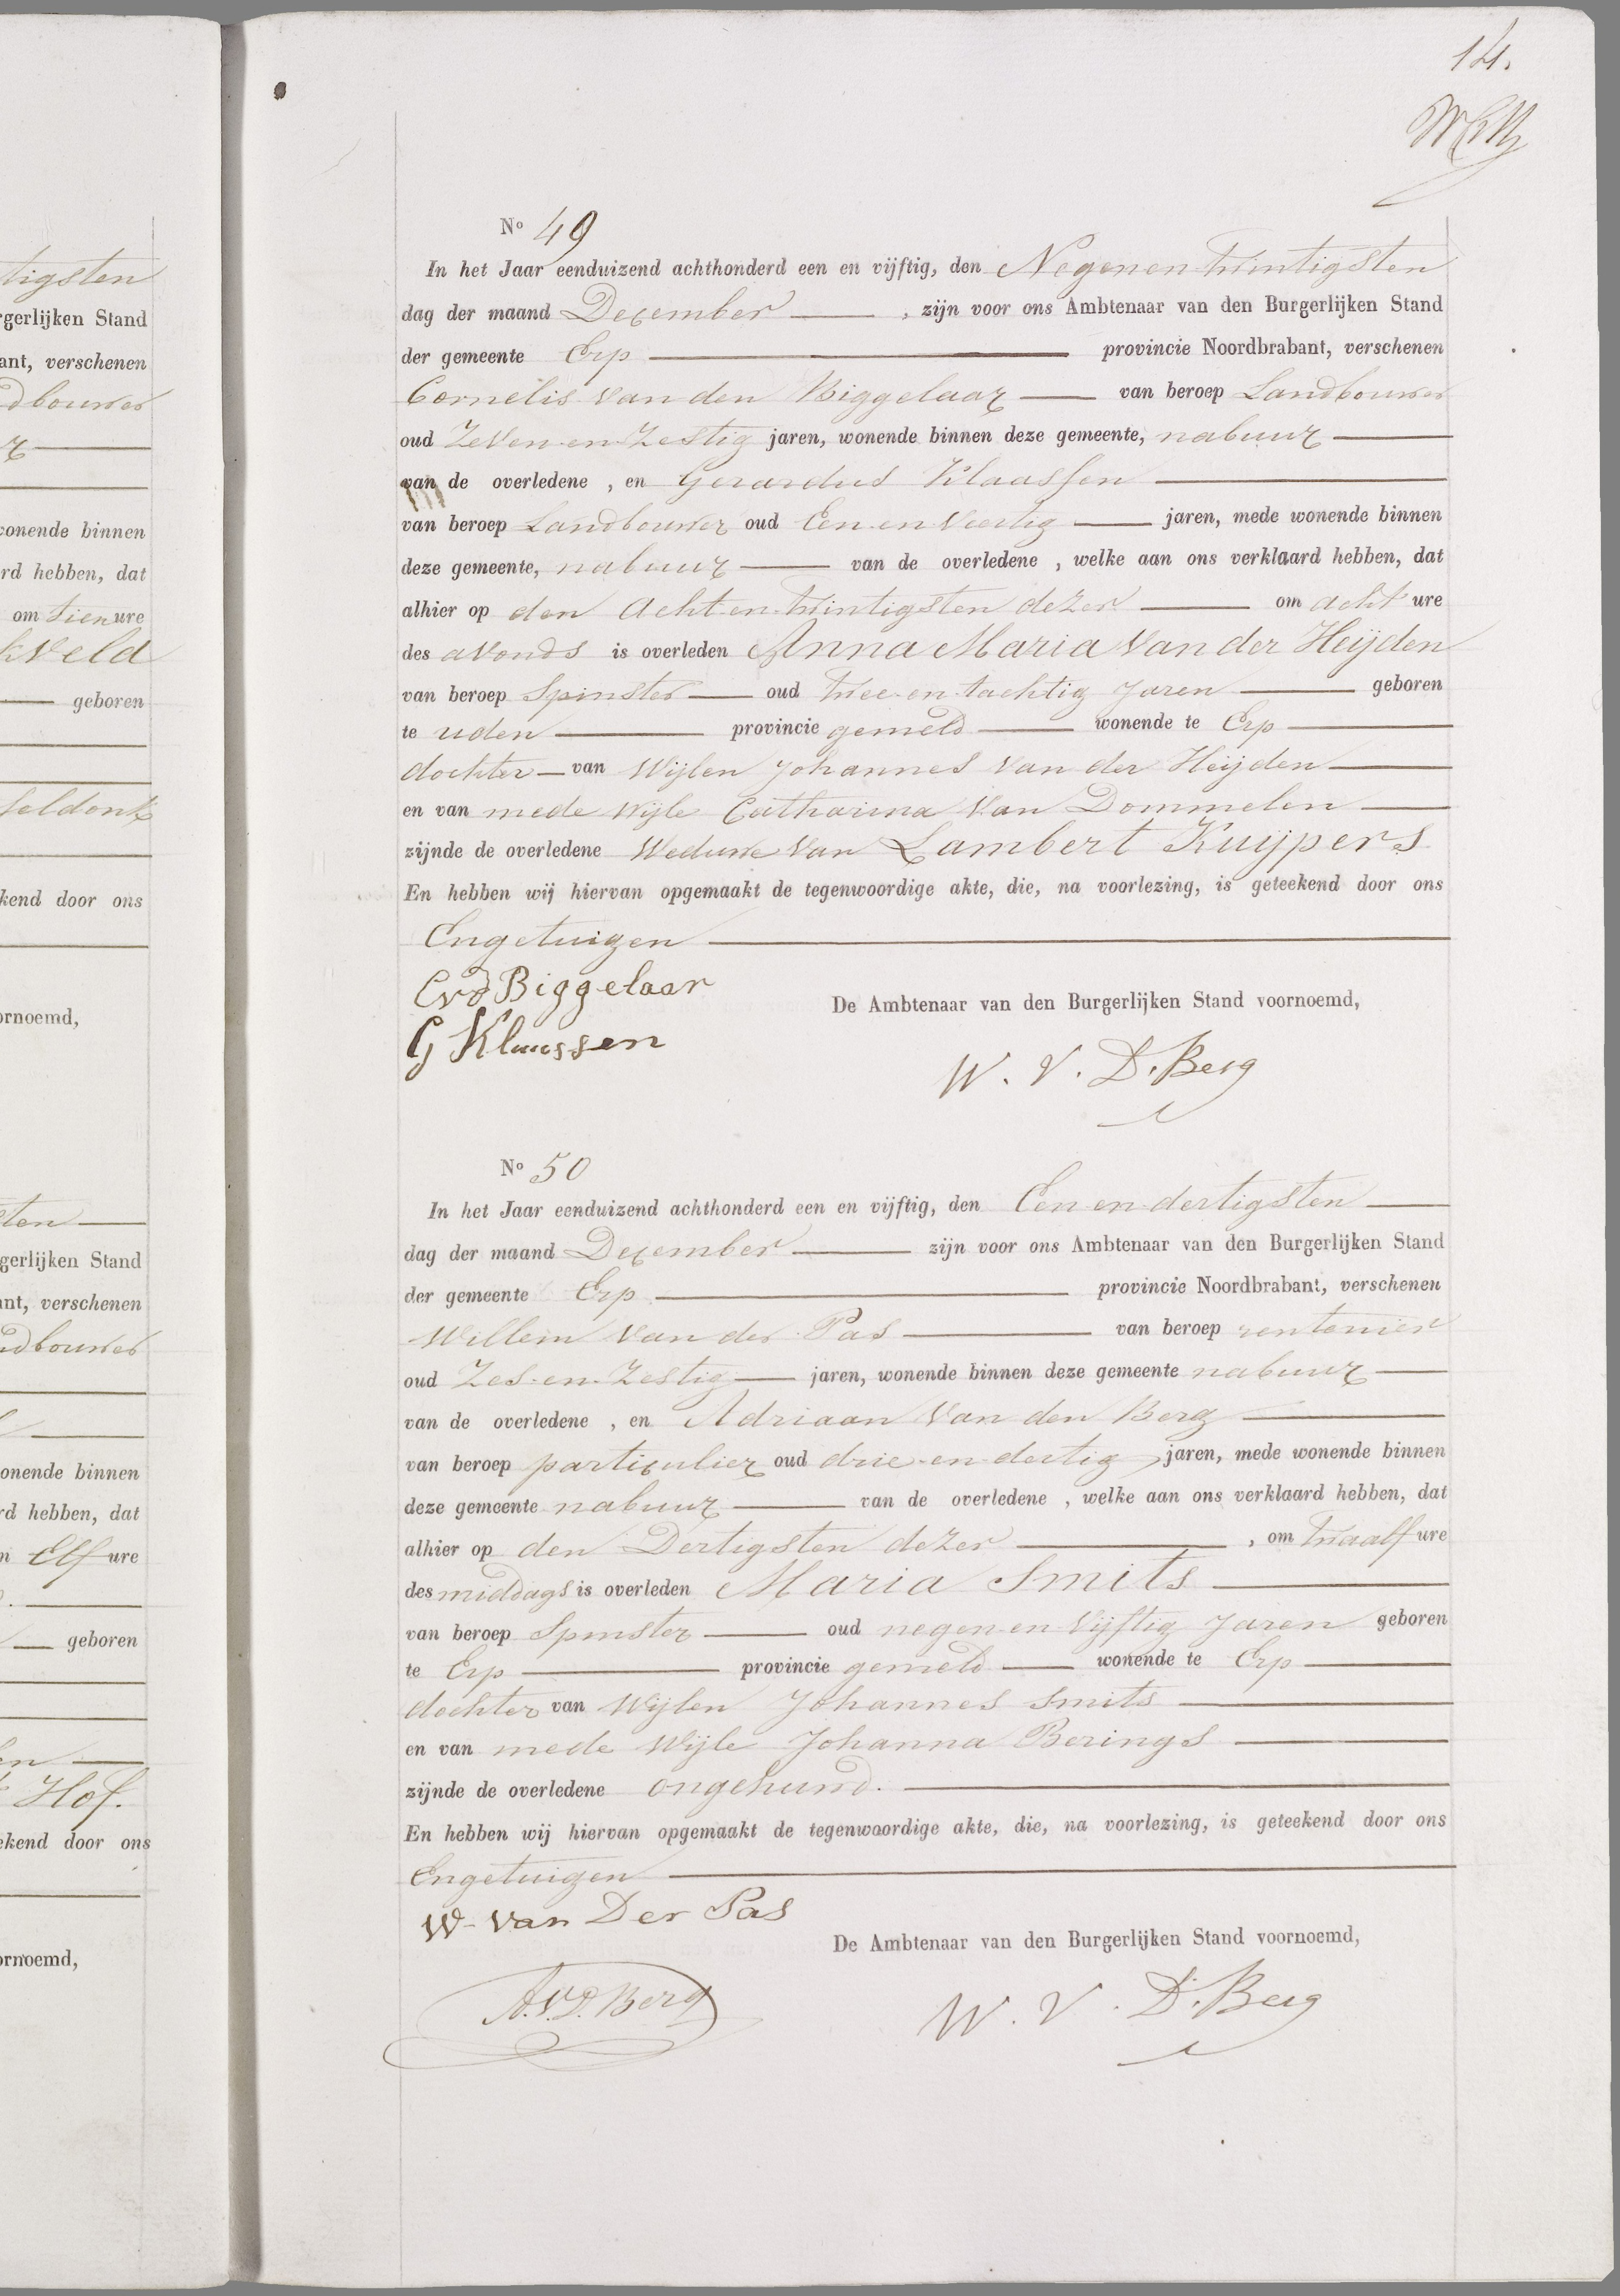 tigsten
rgerlijken Stand
ant, verschenen
dbouwer
wonende binnen
rd hebben, dat
om tien ure
kveld
geboren
seldonk
kend door ons
ornoemd,
sten
gerlijken Stand
ant, verschenen
ndbouwer
onende binnen
rd hebben, dat
Elf ure
geboren
Hof.
ekend door ons
ornoemd,
14.
No 49
In het Jaar eenduizend achthonderd een en vijftig, den Negenentwintigsten
dag der maand December , zijn voor ons Ambtenaar van den Burgerlijken Stand
der gemeente Erp provincie Noordbrabant, verschenen
Cornelis van den Biggelaar van beroep Landbouwer
oud Zeven-en-Zestig jaren, wonende binnen deze gemeente, nabuur
van de overledene , en Gerardus Klaassen
van beroep Landbouwer oud Een en Veertig jaren, mede wonende binnen
deze gemeente, nabuur van de overledene , welke aan ons verklaard hebben, dat
alhier op den Acht en twintigsten dezer om acht ure
des avonds is overleden Anna Maria van der Heijden
van beroep Spinster oud twee-en-tachtig Jaren geboren
te uden provincie gemeld wonende te Erp
dochter van Wijlen Johannes van der Heijden
en van mede wijle Catharina van Dommelen
zijnde de overledene Weduwe van Lambert Kuijpers
En hebben wij hiervan opgemaakt de tegenwoordige akte, die, na voorlezing, is geteekend door ons
Engetuigen
Cvd Biggelaar
De Ambtenaar van den Burgerlijken Stand voornoemd,
G Klaassen
W. V. D. Berg
No 50
In het Jaar eenduizend achthonderd een en vijftig, den Een en dertigsten
dag der maand December zijn voor ons Ambtenaar van den Burgerlijken Stand
der gemeente Erp provincie Noordbrabant, verschenen
Willem van der Pas van beroep rentenier
oud Zes-en-Zestig jaren, wonende binnen deze gemeente nabuur
van de overledene , en Adriaan van den Berg
van beroep particulier oud drie-en-dertig jaren, mede wonende binnen
deze gemeente nabuur van de overledene , welke aan ons verklaard hebben, dat
alhier op den Dertigsten dezer , om twaalf ure
des middags is overleden Maria Smits
van beroep Spinster oud negen-en-Vijftig Jaren geboren
te Erp provincie gemeld wonende te Erp
dochter van Wijlen Johannes Smits
en van mede Wijle Johanna Berings
zijnde de overledene ongehuwd.
En hebben wij hiervan opgemaakt de tegenwoordige akte, die, na voorlezing, is geteekend door ons
Engetuigen
W. van Der Pas
De Ambtenaar van den Burgerlijken Stand voornoemd,
A.V.D. Berg
W. V. D. Berg